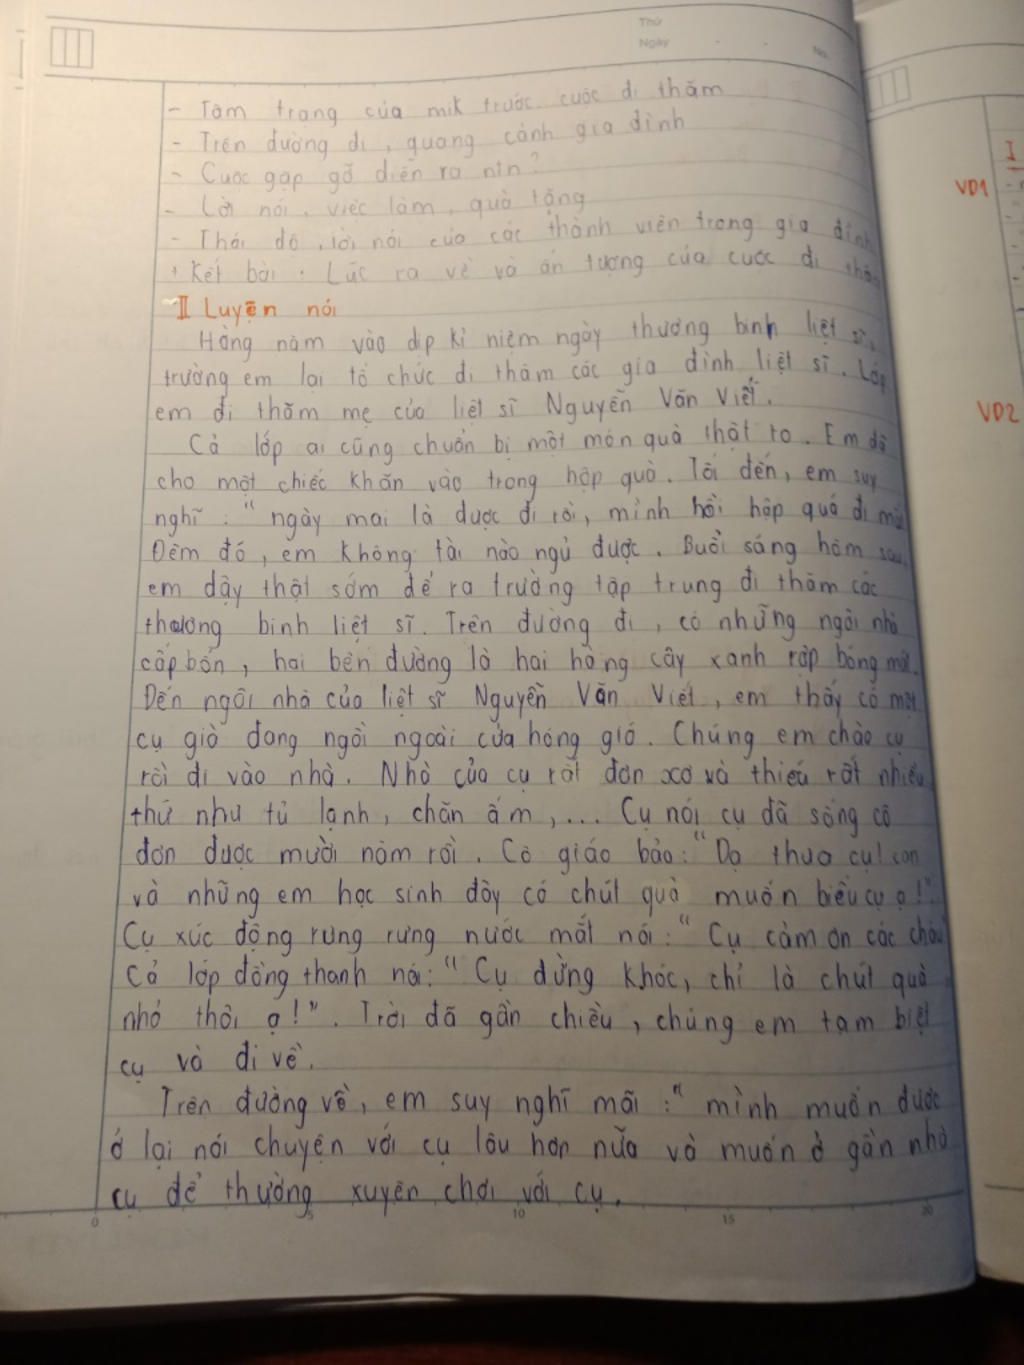 Thứ
Ngày
No.
- Tâm trạng của mik trước cuộc đi thăm
- Trên đường đi, quang cảnh gia đình
- Cuộc gặp gỡ diễn ra ntn?
- Lời nói, việc làm, quà tặng
- Thái độ, lời nói của các thành viên trong gia đình
+ Kết bài : Lúc ra về và ấn tượng của cuộc đi thăm
II Luyện nói
Hàng năm vào dịp kỉ niệm ngày thương binh liệt sĩ,
trường em lại tổ chức đi thăm các gia đình liệt sĩ. Lớp
em đi thăm mẹ của liệt sĩ Nguyễn Văn Viết.
Cả lớp ai cũng chuẩn bị một món quà thật to. Em đã
cho một chiếc khăn vào trong hộp quà. Tối đến, em suy
nghĩ : "ngày mai là được đi rồi, mình hồi hộp quá đi mất
Đêm đó, em không tài nào ngủ được. Buổi sáng hôm sau,
em dậy thật sớm để ra trường tập trung đi thăm các
thương binh liệt sĩ. Trên đường đi, có những ngôi nhà
cấp bốn, hai bên đường là hai hàng cây xanh rợp bóng mát.
Đến ngôi nhà của liệt sĩ Nguyễn Văn Viết, em thấy có một
cụ già đang ngồi ngoài cửa hóng gió. Chúng em chào cụ
rồi đi vào nhà. Nhà của cụ rất đơn xơ và thiếu rất nhiều
thứ như tủ lạnh, chăn ấm,... Cụ nói cụ đã sống cô
đơn được mười năm rồi. Cô giáo bảo: "Dạ thưa cụ! con
và những em học sinh đây có chút quà muốn biếu cụ ạ!".
Cụ xúc động rưng rưng nước mắt nói: "Cụ cảm ơn các cháu
Cả lớp đồng thanh nói: "Cụ đừng khóc, chỉ là chút quà
nhỏ thôi ạ!". Trời đã gần chiều, chúng em tạm biệt
cụ và đi về.
Trên đường về, em suy nghĩ mãi :" mình muốn được
ở lại nói chuyện với cụ lâu hơn nữa và muốn ở gần nhà
cụ để thường xuyên chơi với cụ.
0 5 10 15 20
I
VD1
VD2